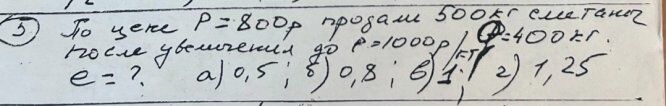 5) По цене P=800р продали 500кг сметаны
после увеличения до P=1000р/кг Q=400кг.
e=? а) 0,5; б) 0,8; в) 1; г) 1,25